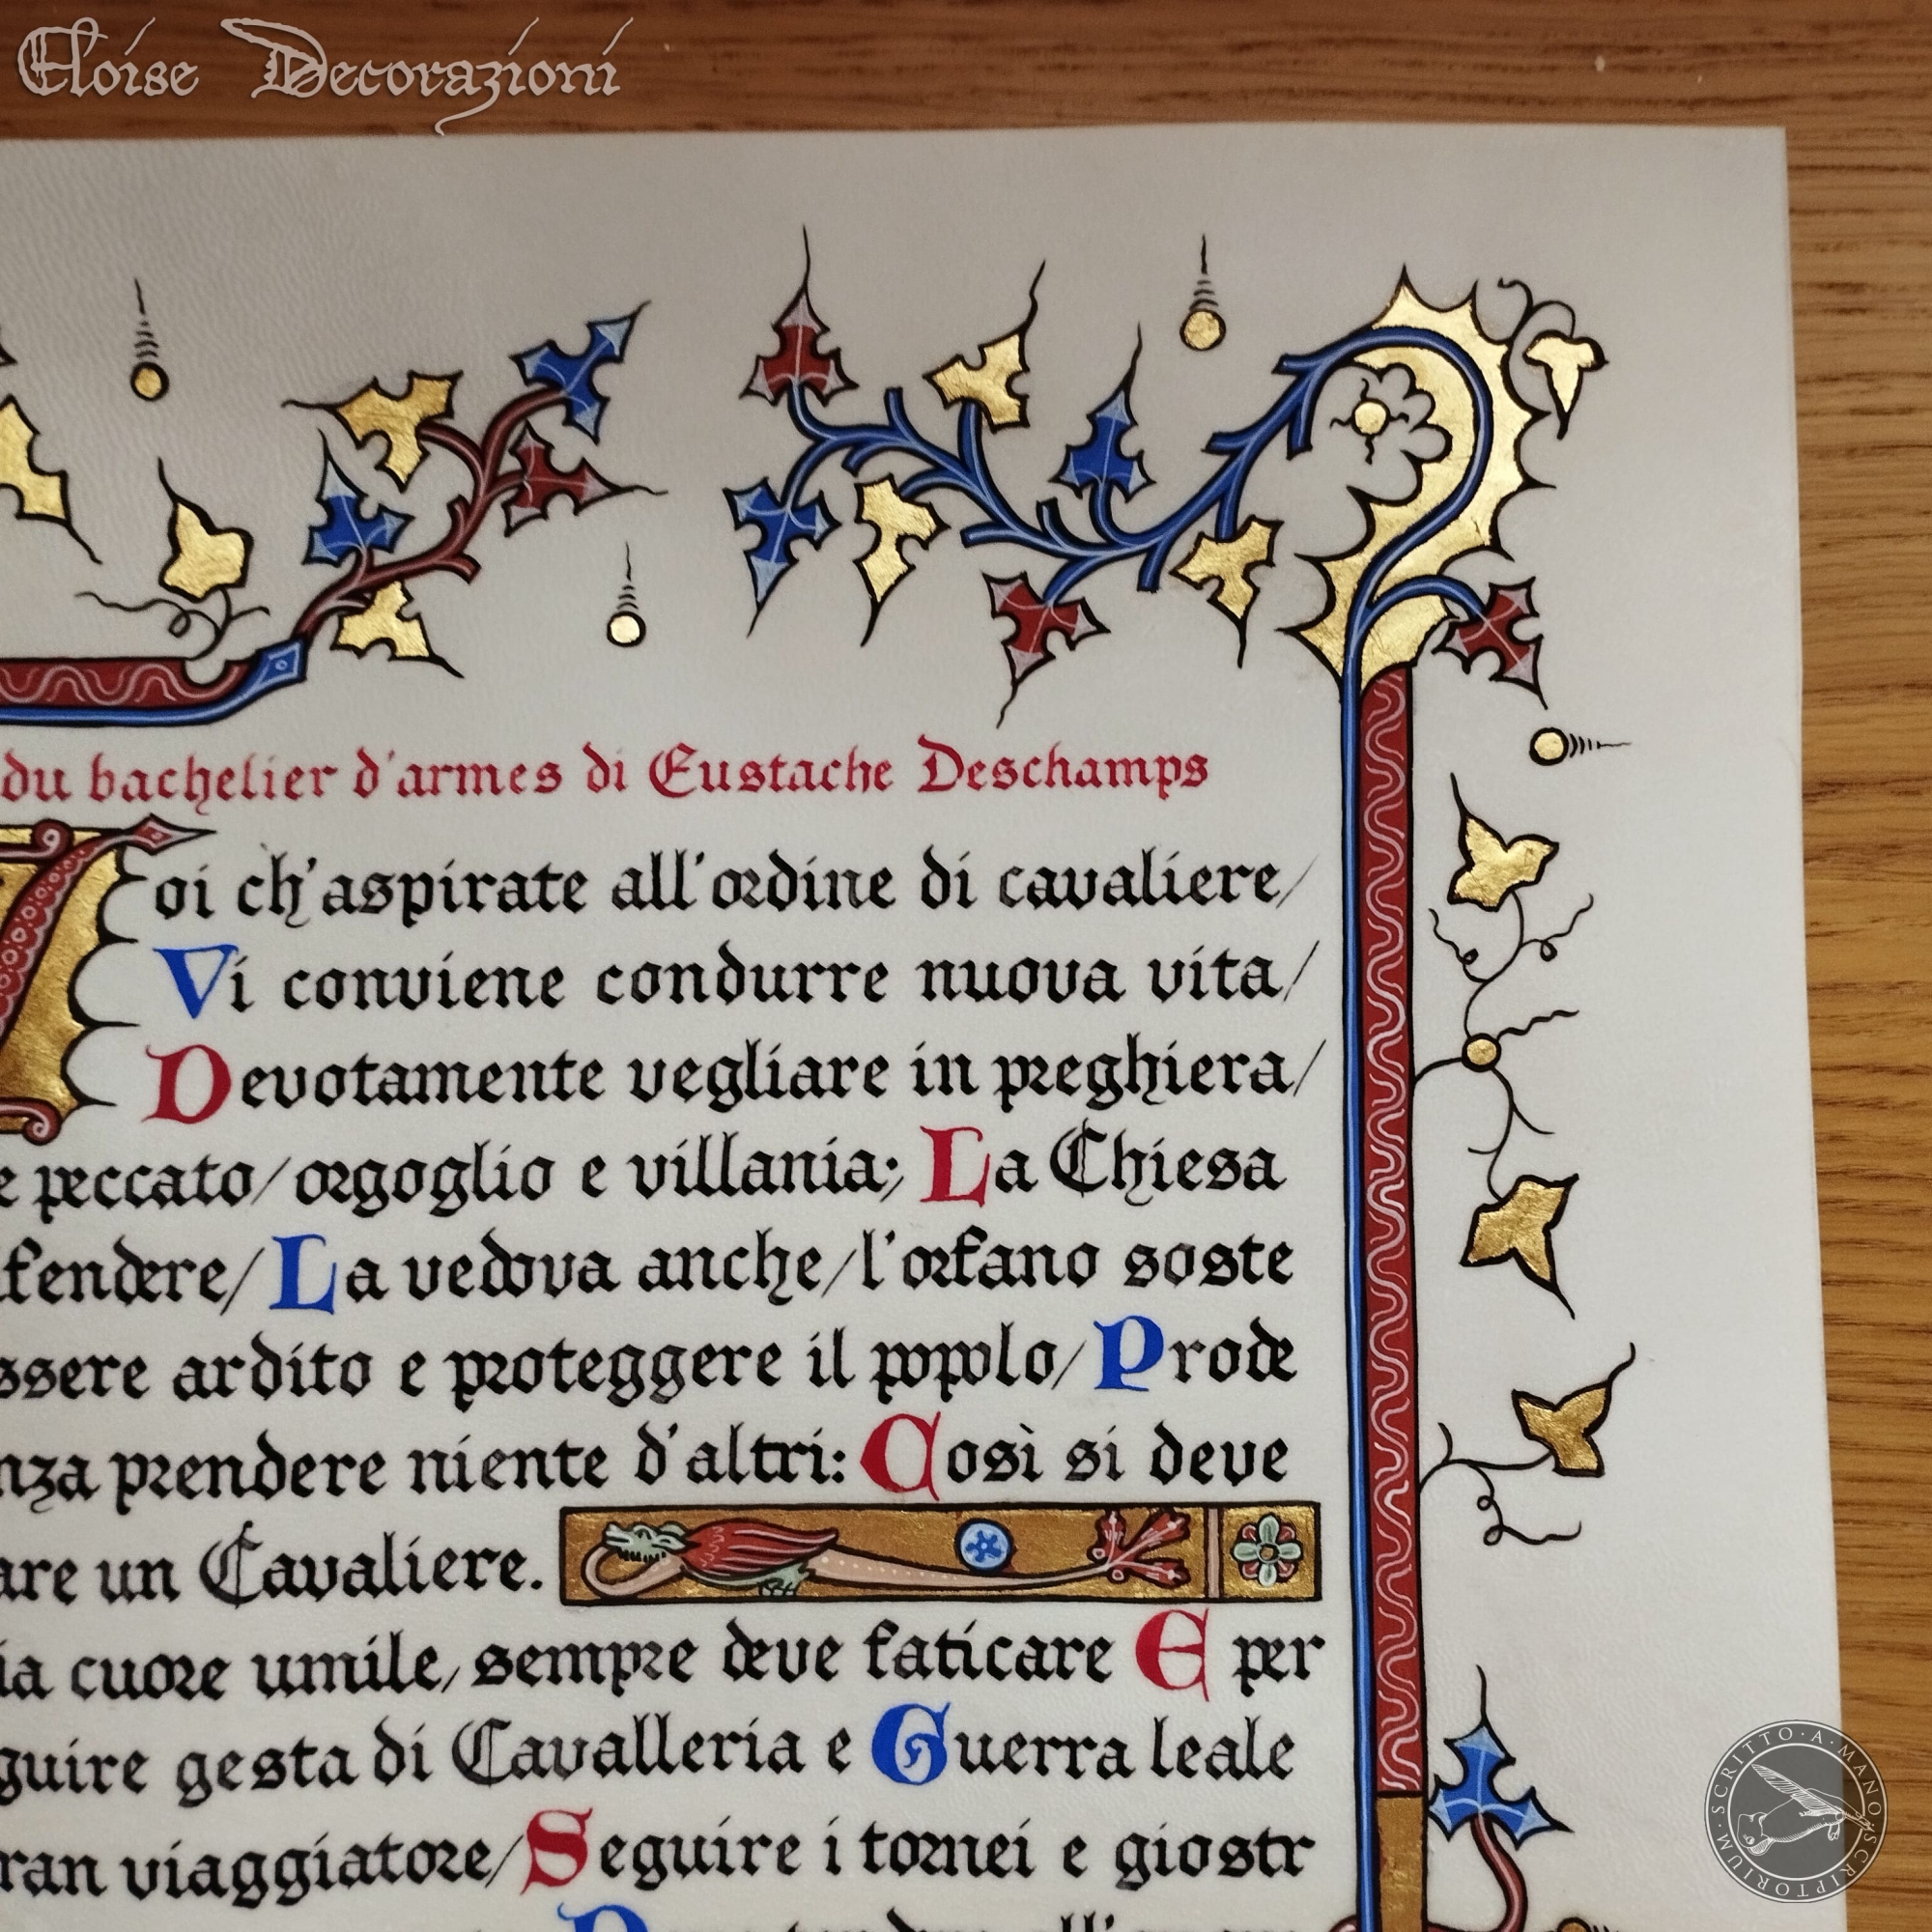 Eloise Decorazioni
du bachelier d'armes di Eustache Deschamps
Voi ch'aspirate all'ordine di cavaliere/
Vi conviene condurre nuova vita/
Devotamente vegliare in preghiera/
e peccato/orgoglio e villania; La Chiesa
fendere/La vedova anche/l'orfano soste
ssere ardito e proteggere il popolo/Prode
nza prendere niente d'altri: Così si deve
are un Cavaliere.
ia cuore umile, sempre deve faticare E per
guire gesta di Cavalleria e Guerra leale
ran viaggiatore/Seguire i tornei e giostr
SCRITTO·A·MANO·SCRIPTORIUM·